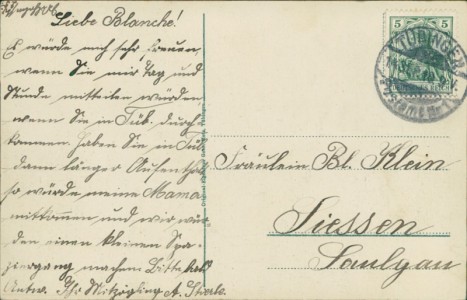 Liebe Blanche!
Es würde mich sehr freuen,
wenn Sie mir Tag und
Stunde mitteilen würden
wenn Sie in Tüb. durch-
kommen. Haben Sie in Tüb.
dann länger Aufenthalt
so würde meine Mama
mitkommen und wir wür-
den einen kleinen Spa-
ziergang machen. Bitte bald
Antw. Ihr Mitzögling A.
5 5
TÜBINGEN
Fräulein Bl. Klein
Siessen
Saulgau